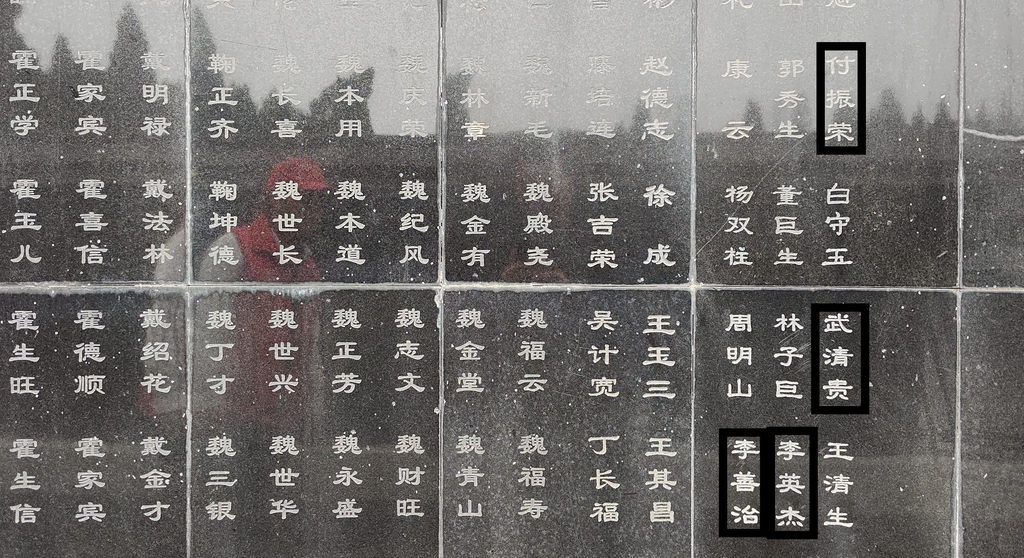 霍正学
霍家宾
戴明禄
鞠正齐
魏长喜
魏本用
魏庆荣
魏林章
魏新毛
滕培连
赵德志
康云
郭秀生
付振荣
霍玉儿
霍喜信
戴法林
鞠坤德
魏世长
魏本道
魏纪风
魏金有
魏殿尧
张吉荣
徐成
杨双柱
董巨生
白守玉
霍生旺
霍德顺
戴绍花
魏丁才
魏世兴
魏正芳
魏志文
魏金堂
魏福云
吴计宽
王玉三
周明山
林子巨
武清贵
霍生信
霍家宾
戴金才
魏三银
魏世华
魏永盛
魏财旺
魏青山
魏福寿
丁长福
王其昌
李善治
李英杰
王清生